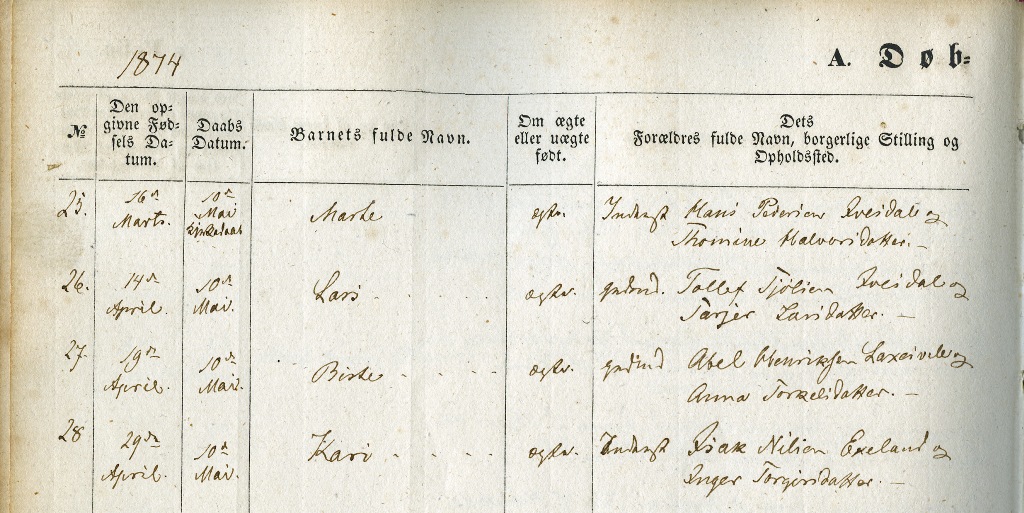 1874
A. Døb-
№
Den op-
givne Fød-
sels Da-
tum.
Daabs
Datum.
Barnets fulde Navn.
Om ægte
eller uægte
født.
Dets
Forældres fulde Navn, borgerlige Stilling og
Opholdssted.
25. 16de 10de Marthe ægte. Inderst Hans Pedersen og
Marts. Mai Thomine Halvorsdatter.
26. 14de 10de Lars ægte. gdbrd. Tollef og
April. Mai. Larsdatter.
27. 19de 10de Birthe ægte. gdbrd Abel Henriksen og
April. Mai. Anna Torkelsdatter.
28 29de 10de Kari ægte. Inderst Isak Nilsen Eseland og
April. Mai. Inger Torgirsdatter.